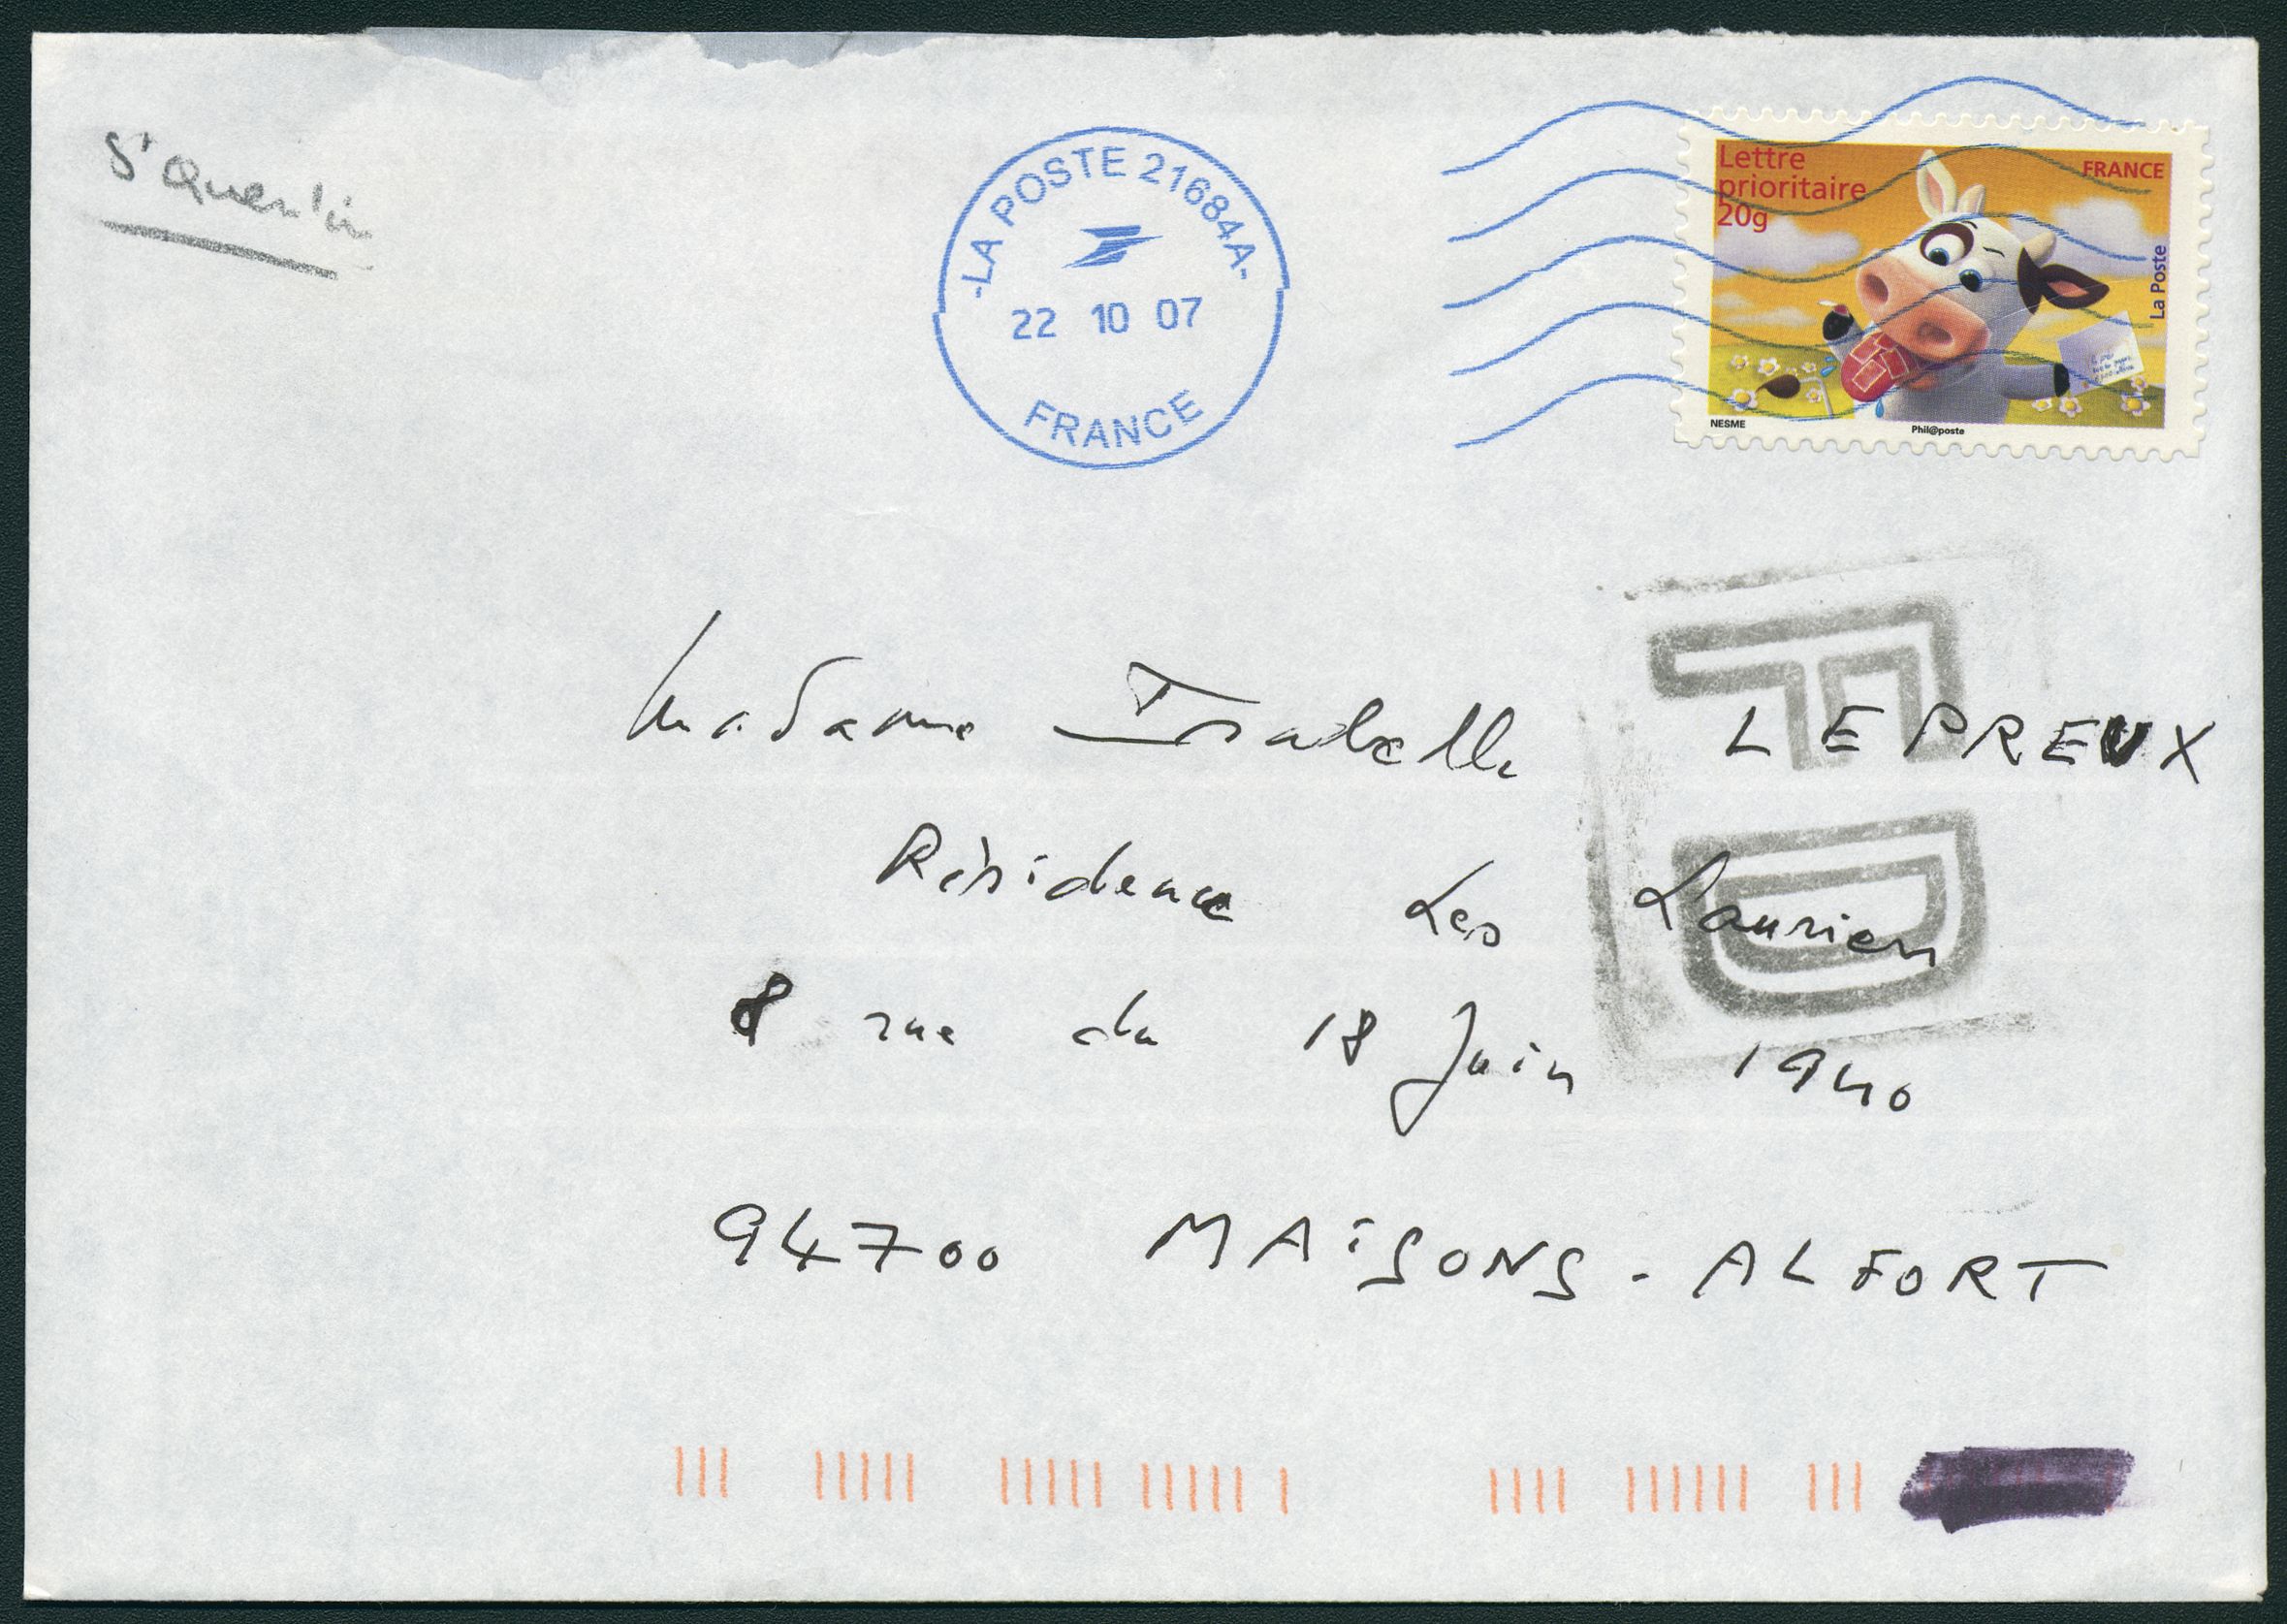 St Quentin
-LA POSTE 21684A-
22 10 07
FRANCE
Lettre
prioritaire
20g
FRANCE
La Poste
NESME
Phil@poste
FD
Madame Isabelle LEPREUX
Résidence Les Lauriers
8 rue du 18 Juin 1940
94700 MAiSONS-ALFORT